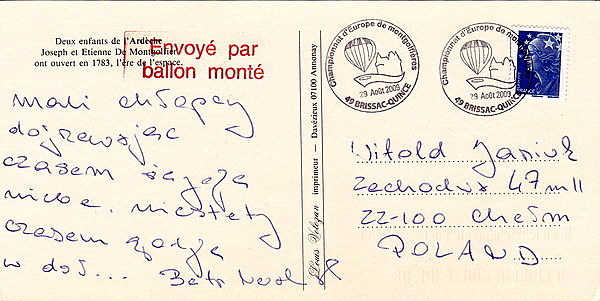 Deux enfants de l'Ardèche
Joseph et Etienne De Montgolfier
ont ouvert en 1783, l'ère de l'espace.
Envoyé par
ballon monté
mali chłopcy
dojrzewając
czasem sięgają
nieba. Niestety
czasem
w dół...
Louis Velezan imprimeur — Davézieux 07100 Annonay
Championnat d'Europe de montgolfières
29 Août 2009
49 BRISSAC-QUINCÉ
Championnat d'Europe de montgolfières
29 Août 2009
49 BRISSAC-QUINCÉ
FRANCE
Witold
47 m 11
22-100 Chełm
POLAND